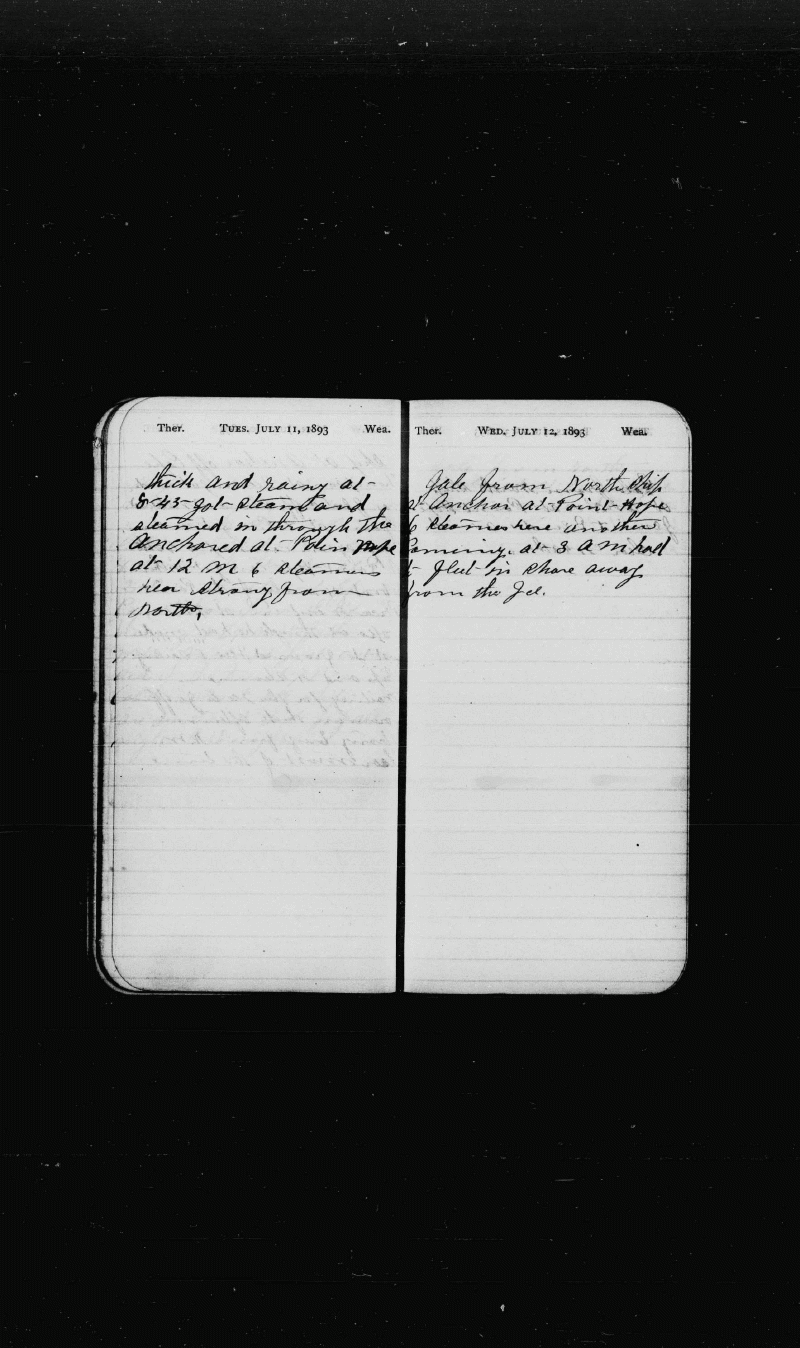 Ther. TUES. JULY 11, 1893 Wea.
thick and rainy at
8-45 got steam and
steamed in through the
Anchored at Poin Hope
at 12 M 6 steamers
hear strong from
North,
Ther. WED. JULY 12, 1893 Wea.
Gale from North ship
at Anchor at Point Hope
6 steamers here another
Coming. at 3 A M had
t fleet in shore away
from the Ice.